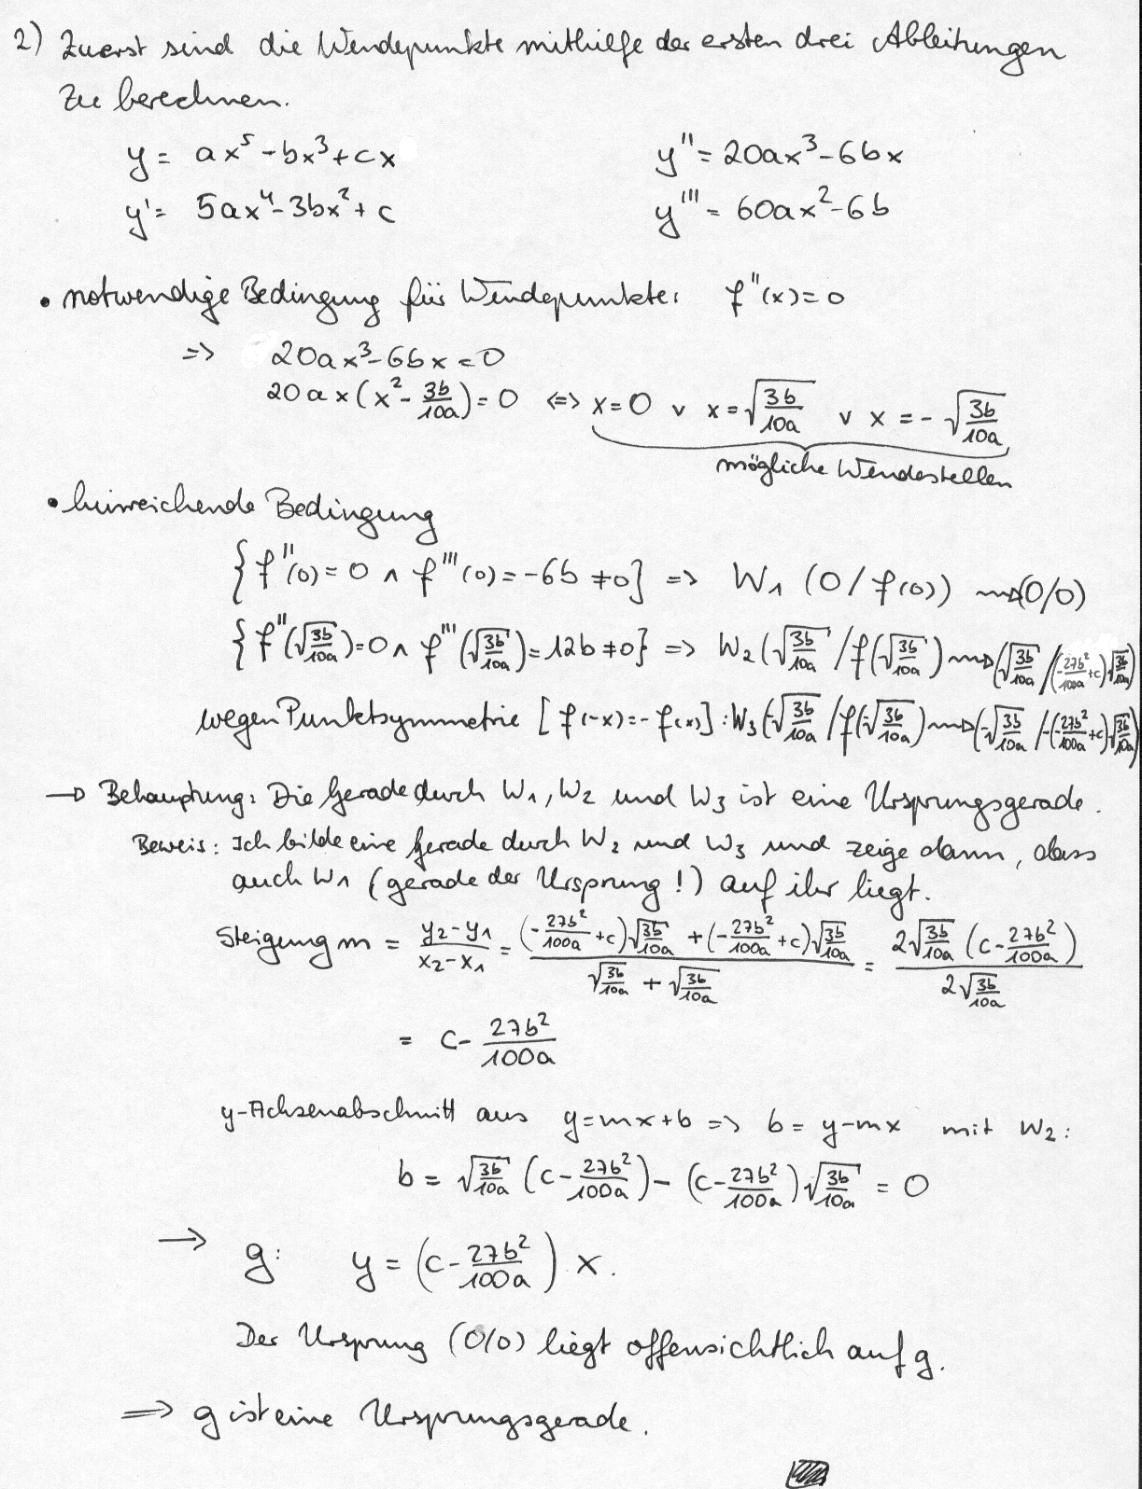 2) Zuerst sind die Wendepunkte mithilfe der ersten drei Ableitungen
zu berechnen.
y = ax⁵ - bx³ + cx    y'' = 20ax³ - 6bx
y' = 5ax⁴ - 3bx² + c    y''' = 60ax² - 6b
• notwendige Bedingung für Wendepunkte: f''(x) = 0
=> 20ax³ - 6bx = 0
20ax(x² - 3b/10a) = 0 <=> x = 0 ∨ x = √(3b/10a) ∨ x = -√(3b/10a)
mögliche Wendestellen
• hinreichende Bedingung
{f''(0) = 0 ∧ f'''(0) = -6b ≠ 0} => W₁ (0/f(0)) ⇝ (0/0)
{f''(√(3b/10a)) = 0 ∧ f'''(√(3b/10a)) = 12b ≠ 0} => W₂(√(3b/10a) / f(√(3b/10a)) ⇝ (√(3b/10a) / (-27b²/100a + c)√(3b/10a))
wegen Punktsymmetrie [f(-x) = -f(x)]: W₃(-√(3b/10a) / f(-√(3b/10a)) ⇝ (-√(3b/10a) / -(-27b²/100a + c)√(3b/10a))
→ Behauptung: Die Gerade durch W₁, W₂ und W₃ ist eine Ursprungsgerade.
Beweis: Ich bilde eine Gerade durch W₂ und W₃ und zeige dann, dass
auch W₁ (gerade der Ursprung!) auf ihr liegt.
Steigung m = (y₂ - y₁)/(x₂ - x₁) = ((-27b²/100a + c)√(3b/10a) + (-27b²/100a + c)√(3b/10a))/(√(3b/10a) + √(3b/10a)) = (2√(3b/10a) (c - 27b²/100a))/(2√(3b/10a))
= c - 27b²/100a
y-Achsenabschnitt aus y = mx + b => b = y - mx mit W₂:
b = √(3b/10a) (c - 27b²/100a) - (c - 27b²/100a) √(3b/10a) = 0
→ g: y = (c - 27b²/100a) x.
Der Ursprung (0/0) liegt offensichtlich auf g.
=> g ist eine Ursprungsgerade.